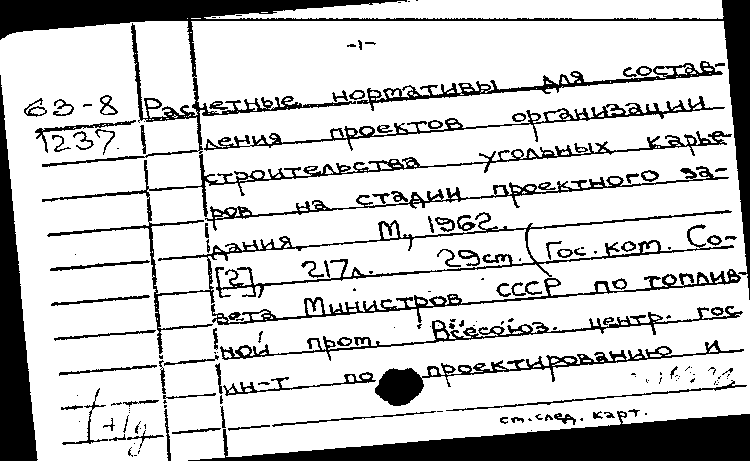 -1-
63-8
1237
Расчетные нормативы для состав-
ления проектов организации
строительства угольных карье-
ров на стадии проектного за-
дания. М., 1962.
[2], 217л. 29см. (Гос. ком. Со-
вета Министров СССР по топлив-
ной пром. Всесоюз. центр. гос
ин-т по проектированию и
ст. след. карт.